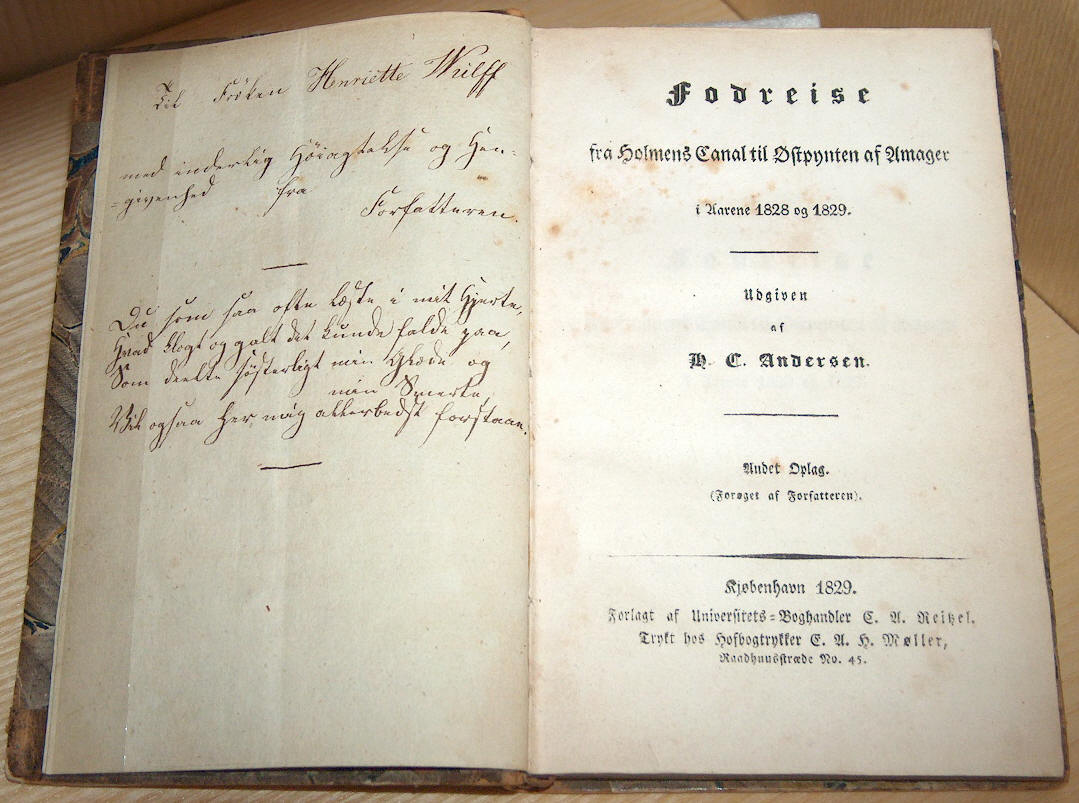 Til Fröken Henriette Wulff
med inderlig Höiagtelse og Hen-
-givenhed fra
Forfatteren.
Du som saa ofte læste i mit Hjerte,
Hvad klogt og galt det kunde falde paa,
Som deelte sösterligt min Glæde og
min Smerte,
Vil ogsaa her mig allerbedst forstaae.
Fodreise
fra Holmens Canal til Østpynten af Amager
i Aarene 1828 og 1829.
Udgiven
af
H. C. Andersen.
Andet Oplag.
(Forøget af Forfatteren).
Kjøbenhavn 1829.
Forlagt af Universitets-Boghandler C. A. Reitzel.
Trykt hos Hofbogtrykker E. A. H. Møller,
Raadhuusstræde No. 45.